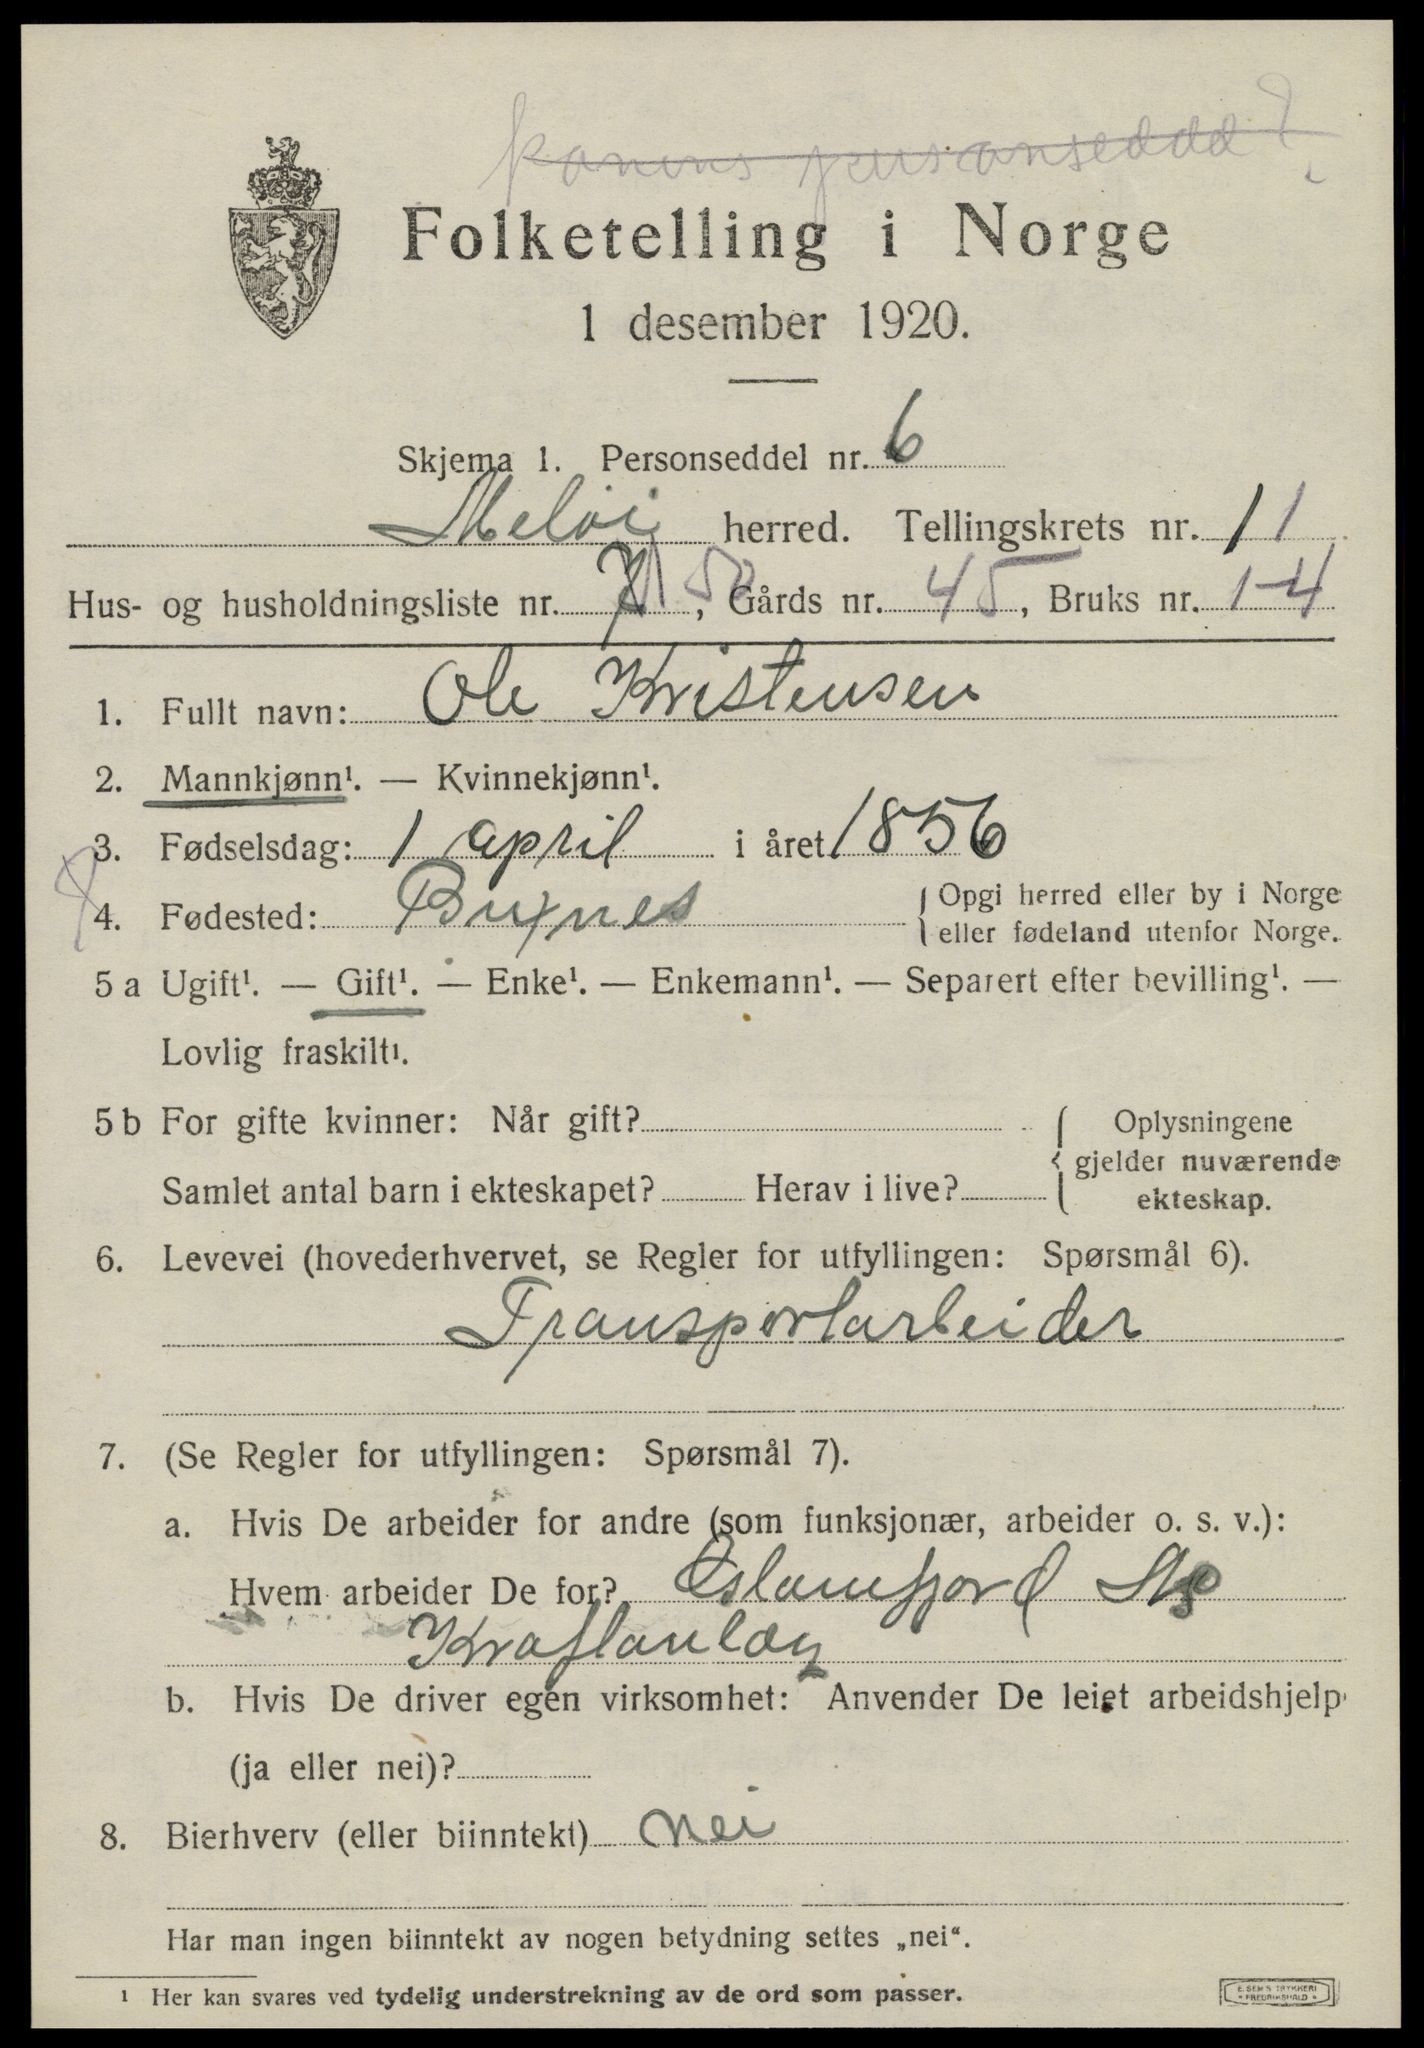 konens personseddel?
Folketelling i Norge
1 desember 1920.
Skjema 1. Personseddel nr. 6
Meløi herred. Tellingskrets nr. 11
Hus- og husholdningsliste nr. 50, Gårds nr. 45, Bruks nr. 1-4
1. Fullt navn: Ole Kristensen
2. Mannkjønn¹. — Kvinnekjønn¹.
3. Fødselsdag: 1 april i året 1856
4. Fødested: Buxnes { Opgi herred eller by i Norge
eller fødeland utenfor Norge.
5 a Ugift¹. — Gift¹. — Enke¹. — Enkemann¹. — Separert efter bevilling¹. —
Lovlig fraskilt¹.
5 b For gifte kvinner: Når gift? { Oplysningene
gjelder nuværende
Samlet antal barn i ekteskapet? Herav i live? ekteskap.
6. Levevei (hovederhvervet, se Regler for utfyllingen: Spørsmål 6).
Transportarbeider
7. (Se Regler for utfyllingen: Spørsmål 7).
a. Hvis De arbeider for andre (som funksjonær, arbeider o. s. v.):
Hvem arbeider De for?
Kraftanlæg
b. Hvis De driver egen virksomhet: Anvender De leiet arbeidshjelp
(ja eller nei)?
8. Bierhverv (eller biinntekt) nei
Har man ingen biinntekt av nogen betydning settes „nei“.
¹ Her kan svares ved tydelig understrekning av de ord som passer.
E. SEM'S TRYKKERI
FREDRIKSHALD